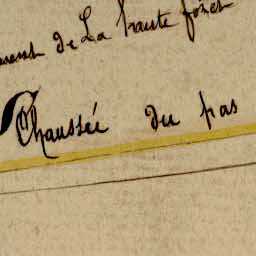 de La haute forêt
Chaussée du pas